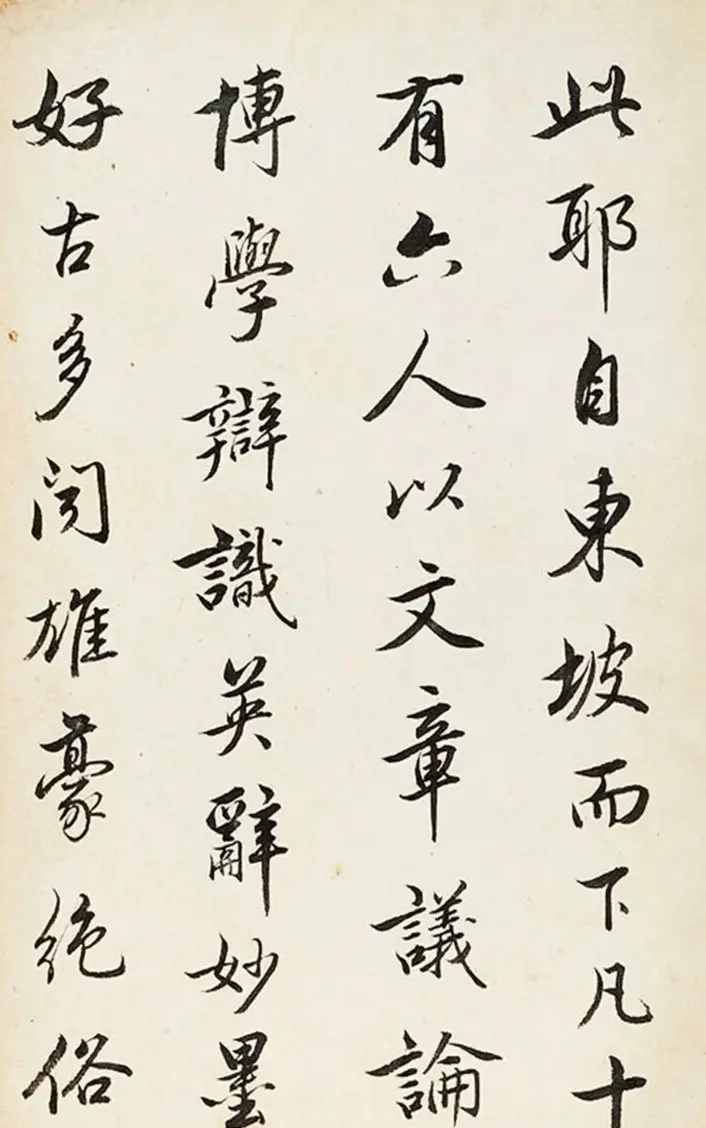 此耶自東坡而下凡十
有六人以文章議論
博學辯識英辭妙墨
好古多聞雄豪絶俗